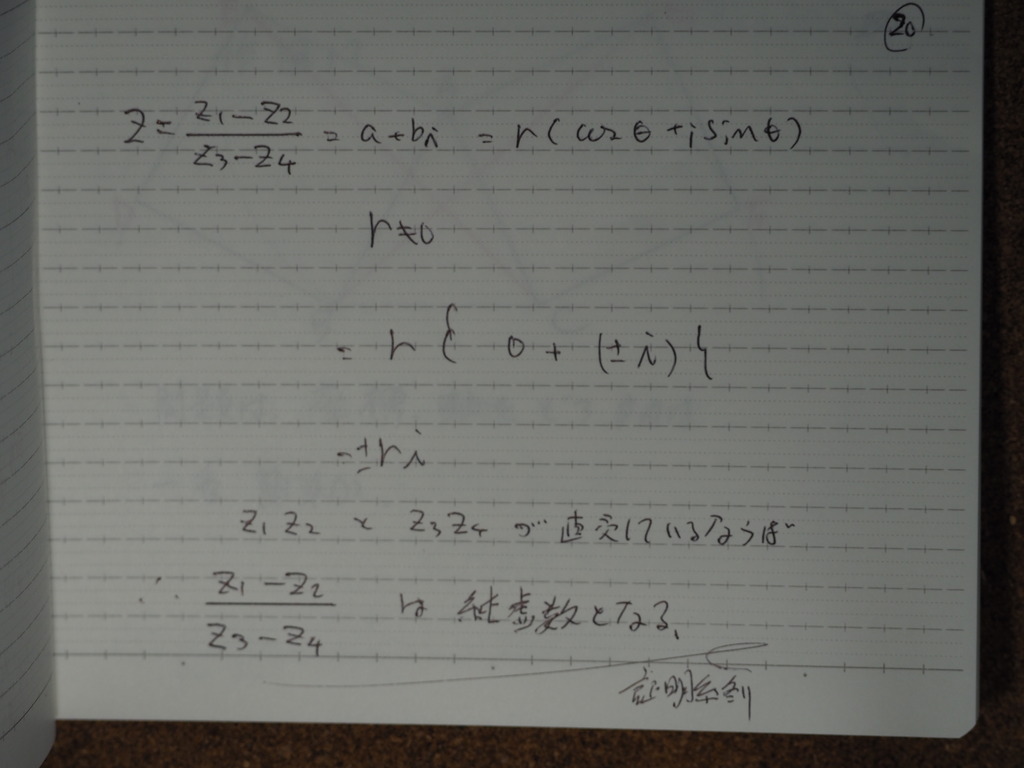 20
Z = \frac{Z_1 - Z_2}{Z_3 - Z_4} = a + bi = r(cosθ + i sinθ)
r ≠ 0
= r { 0 + (± i) }
= ± r i
Z_1 Z_2 と Z_3 Z_4 が 直交しているならば
∴ \frac{Z_1 - Z_2}{Z_3 - Z_4} は 純虚数となる、
証明終り